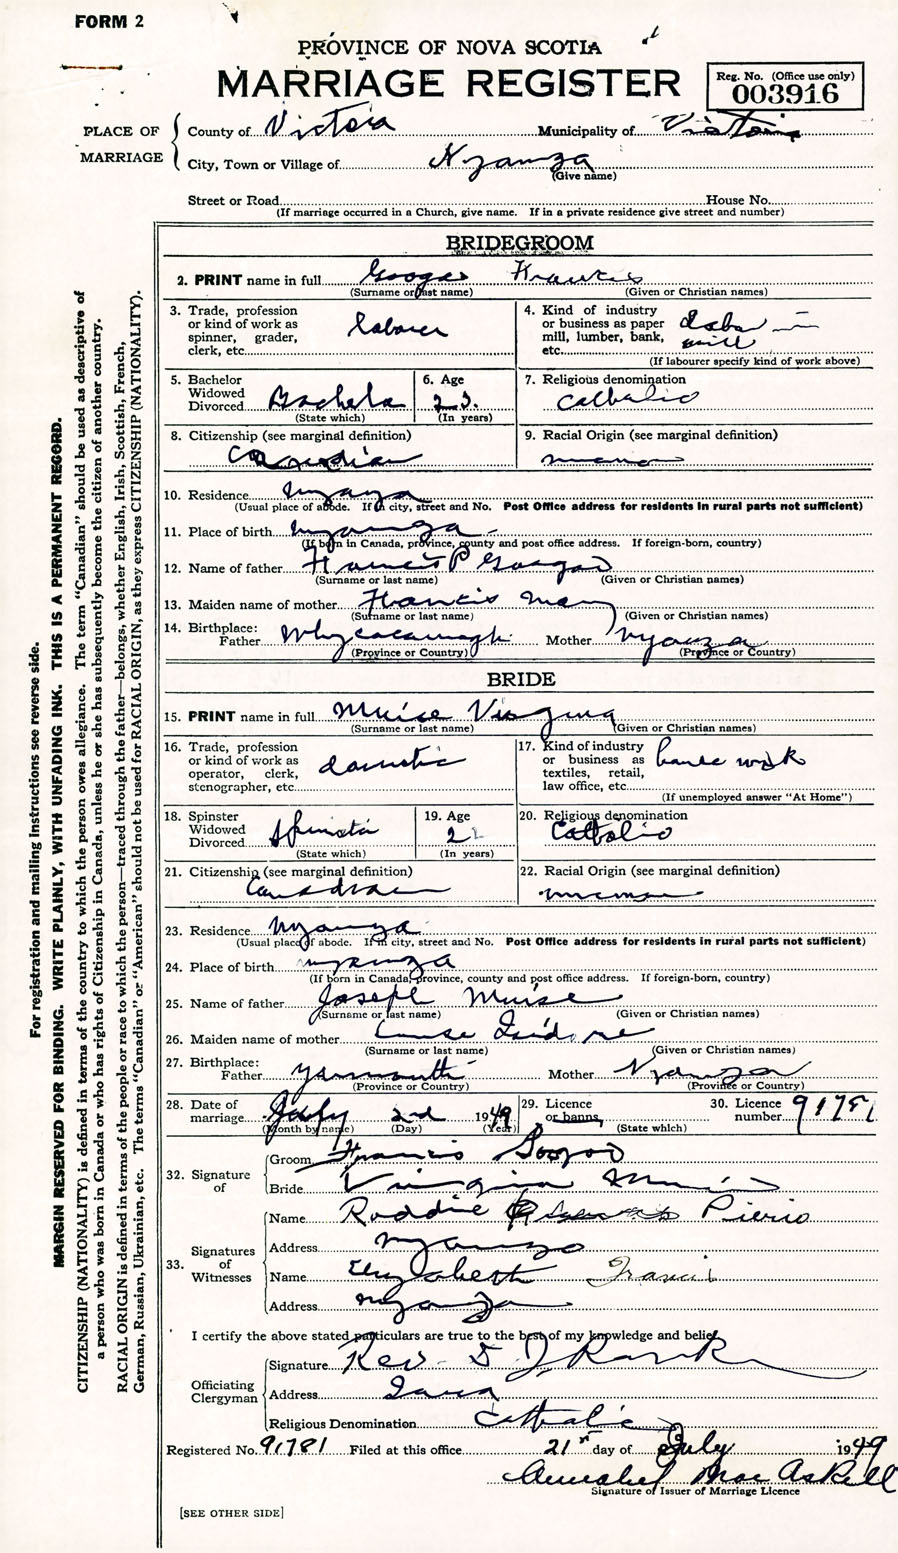 FORM 2
PROVINCE OF NOVA SCOTIA
MARRIAGE REGISTER
Reg. No. (Office use only)
003916
PLACE OF MARRIAGE
County of Victoria Municipality of Victoria
City, Town or Village of Nyanza
(Give name)
Street or Road House No.
(If marriage occurred in a Church, give name. If in a private residence give street and number)
BRIDEGROOM
2. PRINT name in full Googoo Francis
(Surname or last name) (Given or Christian names)
3. Trade, profession or kind of work as spinner, grader, clerk, etc. Laborer
4. Kind of industry or business as paper mill, lumber, bank, etc. Labor in mill
(If labourer specify kind of work above)
5. Bachelor Widowed Divorced Bachelor
(State which)
6. Age 23.
(In years)
7. Religious denomination Catholic
8. Citizenship (see marginal definition) Canadian
9. Racial Origin (see marginal definition)
10. Residence Nyanza
(Usual place of abode. If in city, street and No. Post Office address for residents in rural parts not sufficient)
11. Place of birth Nyanza
(If born in Canada, province, county and post office address. If foreign-born, country)
12. Name of father Francis P Googoo
(Surname or last name) (Given or Christian names)
13. Maiden name of mother Francis Mary
(Surname or last name) (Given or Christian names)
14. Birthplace: Father Whycocomagh Mother Nyanza
(Province or Country) (Province or Country)
BRIDE
15. PRINT name in full Muise Virginia
(Surname or last name) (Given or Christian names)
16. Trade, profession or kind of work as operator, clerk, stenographer, etc. domestic
17. Kind of industry or business as textiles, retail, law office, etc. house work
(If unemployed answer "At Home")
18. Spinster Widowed Divorced Spinster
(State which)
19. Age
(In years)
20. Religious denomination Catholic
21. Citizenship (see marginal definition) Canadian
22. Racial Origin (see marginal definition)
23. Residence Nyanza
(Usual place of abode. If in city, street and No. Post Office address for residents in rural parts not sufficient)
24. Place of birth Nyanza
(If born in Canada, province, county and post office address. If foreign-born, country)
25. Name of father Joseph Muise
(Surname or last name) (Given or Christian names)
26. Maiden name of mother Isidore
(Surname or last name) (Given or Christian names)
27. Birthplace: Father Yarmouth Mother Nyanza
(Province or Country) (Province or Country)
28. Date of marriage July 2nd 1949
(Month by name) (Day) (Year)
29. Licence or banns
(State which)
30. Licence number 91781
32. Signature of
Groom Francis Googoo
Bride Virginia Muise
33. Signatures of Witnesses
Name Roddie Pierro
Address Nyanza
Name Elizabeth Francis
Address Nyanza
I certify the above stated particulars are true to the best of my knowledge and belief.
Officiating Clergyman
Signature Rev. D J Rankin
Address Iona
Religious Denomination Catholic
Registered No. 91781 Filed at this office 21st day of July 1949
Annabel MacAskill
Signature of Issuer of Marriage Licence
[SEE OTHER SIDE]
For registration and mailing instructions see reverse side.
MARGIN RESERVED FOR BINDING. WRITE PLAINLY, WITH UNFADING INK. THIS IS A PERMANENT RECORD.
CITIZENSHIP (NATIONALITY) is defined in terms of the country to which the person owes allegiance. The term "Canadian" should be used as descriptive of
a person who was born in Canada or who has rights of Citizenship in Canada, unless he or she has subsequently become the citizen of another country.
RACIAL ORIGIN is defined in terms of the people or race to which the person—traced through the father—belongs, whether English, Irish, Scottish, French,
German, Russian, Ukrainian, etc. The terms "Canadian" or "American" should not be used for RACIAL ORIGIN, as they express CITIZENSHIP (NATIONALITY).